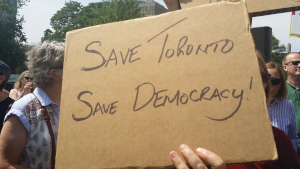 Save Toronto
Save Democracy!